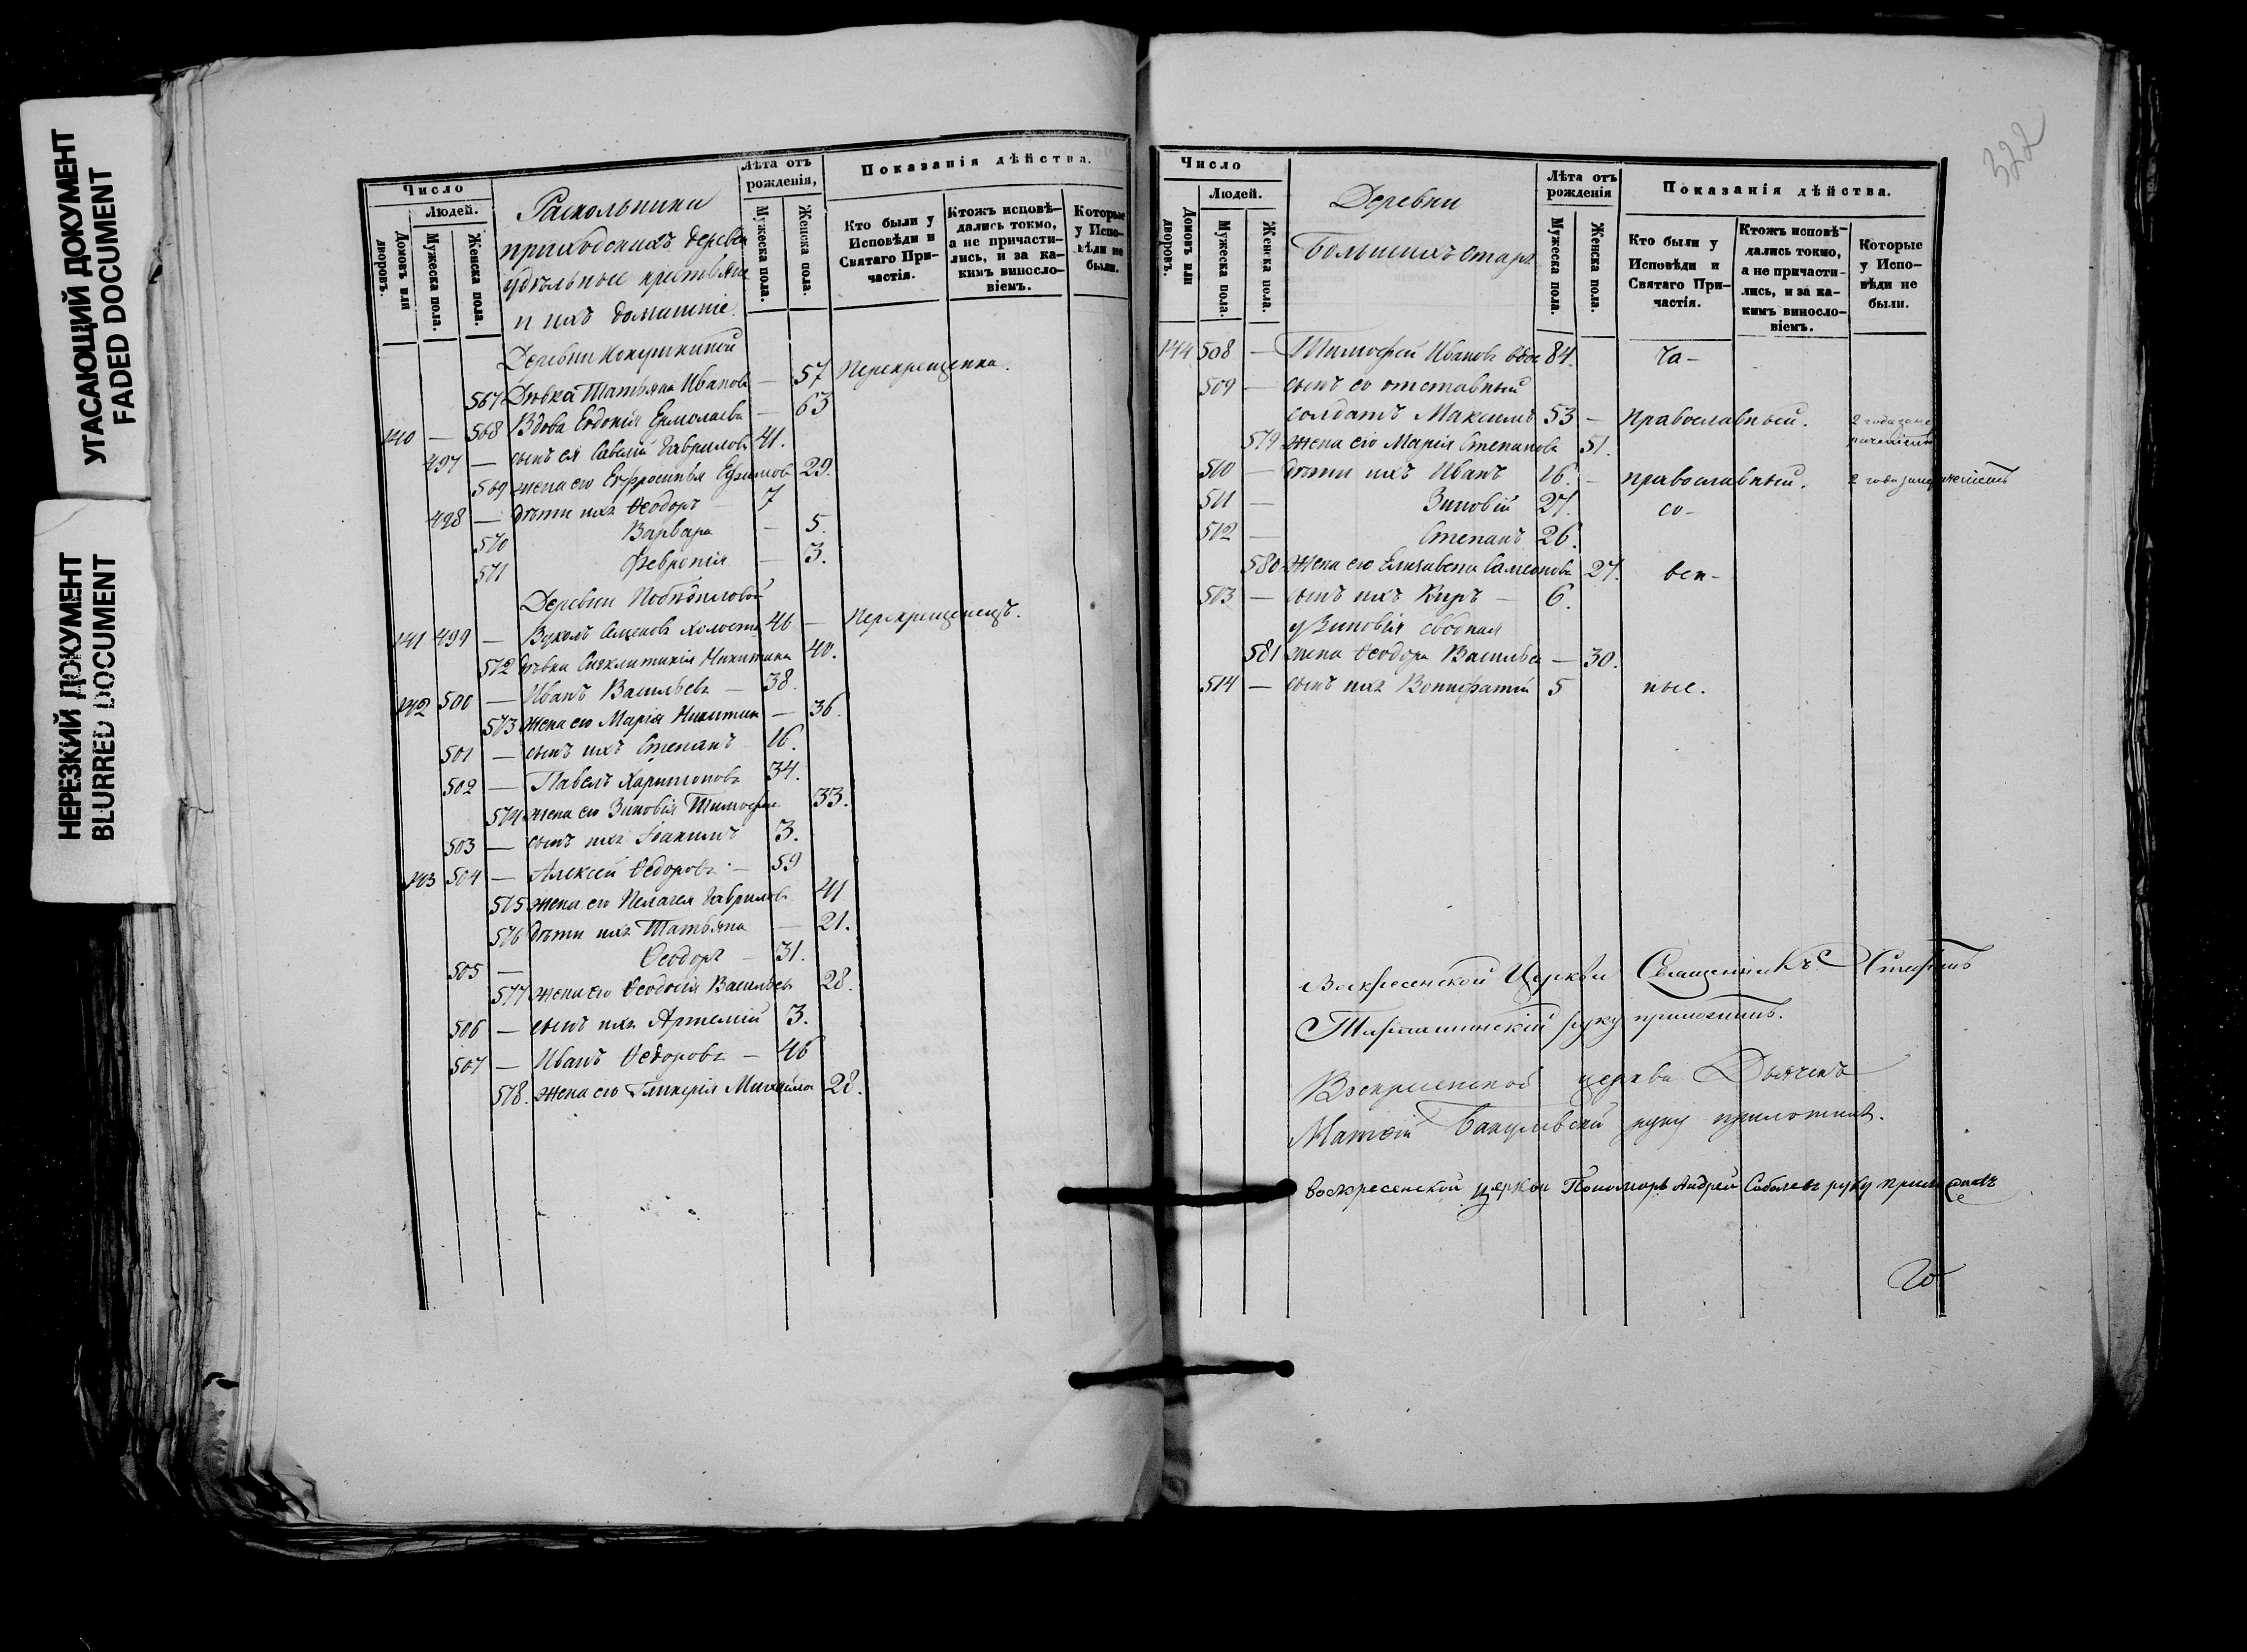 УГАСАЮЩИЙ ДОКУМЕНТ
FADED DOCUMENT
НЕРЕЗКИЙ ДОКУМЕНТ
BLURRED DOCUMENT
Число
Людей.
Домовъ или дворовъ.
Мужеска пола.
Женска пола.
Раскольники
приходскихъ деревен
удѣльные крестьяне
и ихъ домашніе.
Лѣта отъ рожденія,
Мужеска пола.
Женска пола.
Показанія дѣйства.
Кто были у Исповѣди и Святаго Причастія.
Ктожъ исповѣдались токмо, а не причастились, и за какимъ винословіемъ.
Которые у Исповѣди не были.
Деревни
567 Дѣвка Татьяна Иванова — 57 Перекрещенка.
140 — 568 Вдова Евдокія Ермолаева — 63
497 — сынъ ея Савелій Гаврилов 41.
569 жена его Евфросинья Ефимов 29.
498 — дѣти ихъ Ѳеодоръ 7
570 Варвара — 5.
571 Февронія — 3.
Деревни
141 499 — Вуколъ Семенов холостъ 46 — Перекрещенецъ.
572 дѣвка Синклитикія Никитина 40.
142 500 — Иванъ Васильевъ — 38.
573 жена его Марія Никитин — 36.
501 — сынъ ихъ Степанъ 16.
502 — Павелъ Харитоновъ 34.
574 жена его Зиновія Тимофее 33.
503 — сынъ ихъ Іоакимъ 3.
143 504 — Алексей Ѳедоровъ — 59
575 жена его Пелагея Гаврилов 41
576 дѣти ихъ Татьяна — 21.
505 — Ѳеодоръ — 31.
577 жена его Ѳеодосія Васильев 28.
506 — сынъ ихъ Артемій 3.
507 — Иванъ Ѳедоровъ — 46
578. жена его Гликерія Михайло 28.
322
Число
Людей.
Домовъ или дворовъ.
Мужеска пола.
Женска пола.
Деревни
Большихъ Стар
Лѣта отъ рожденія
Мужеска пола.
Женска пола.
Показанія дѣйства.
Кто были у Исповѣди и Святаго Причастія.
Ктожъ исповѣдались токмо, а не причастились, и за какимъ винословіемъ.
Которые у Исповѣди не были.
144 508 — Тимофей Иванов вдов 84. Ча-
509 — сынъ его отставный
солдатъ Максимъ 53 — православный. 2 года
579 жена его Марія Степанова 51.
510 — дѣти ихъ Иванъ 16. — православный. 2 года
511 — Зиновій 27. со-
512 — Степанъ 26.
580 жена его Елизавета Самсонова 27. вен-
513 — сынъ ихъ Киръ — 6.
у Зиновія сводная
581 жена Ѳеодора Васильев — 30.
514 — сынъ ихъ Вонифатій 5 ные.
Воскресенской Церкви Священникъ
руку приложилъ.
Воскресенской церкви Дьячекъ
Матвій руку приложилъ.
воскресенской церкви Пономарь Андрей Соболевъ руку приложилъ